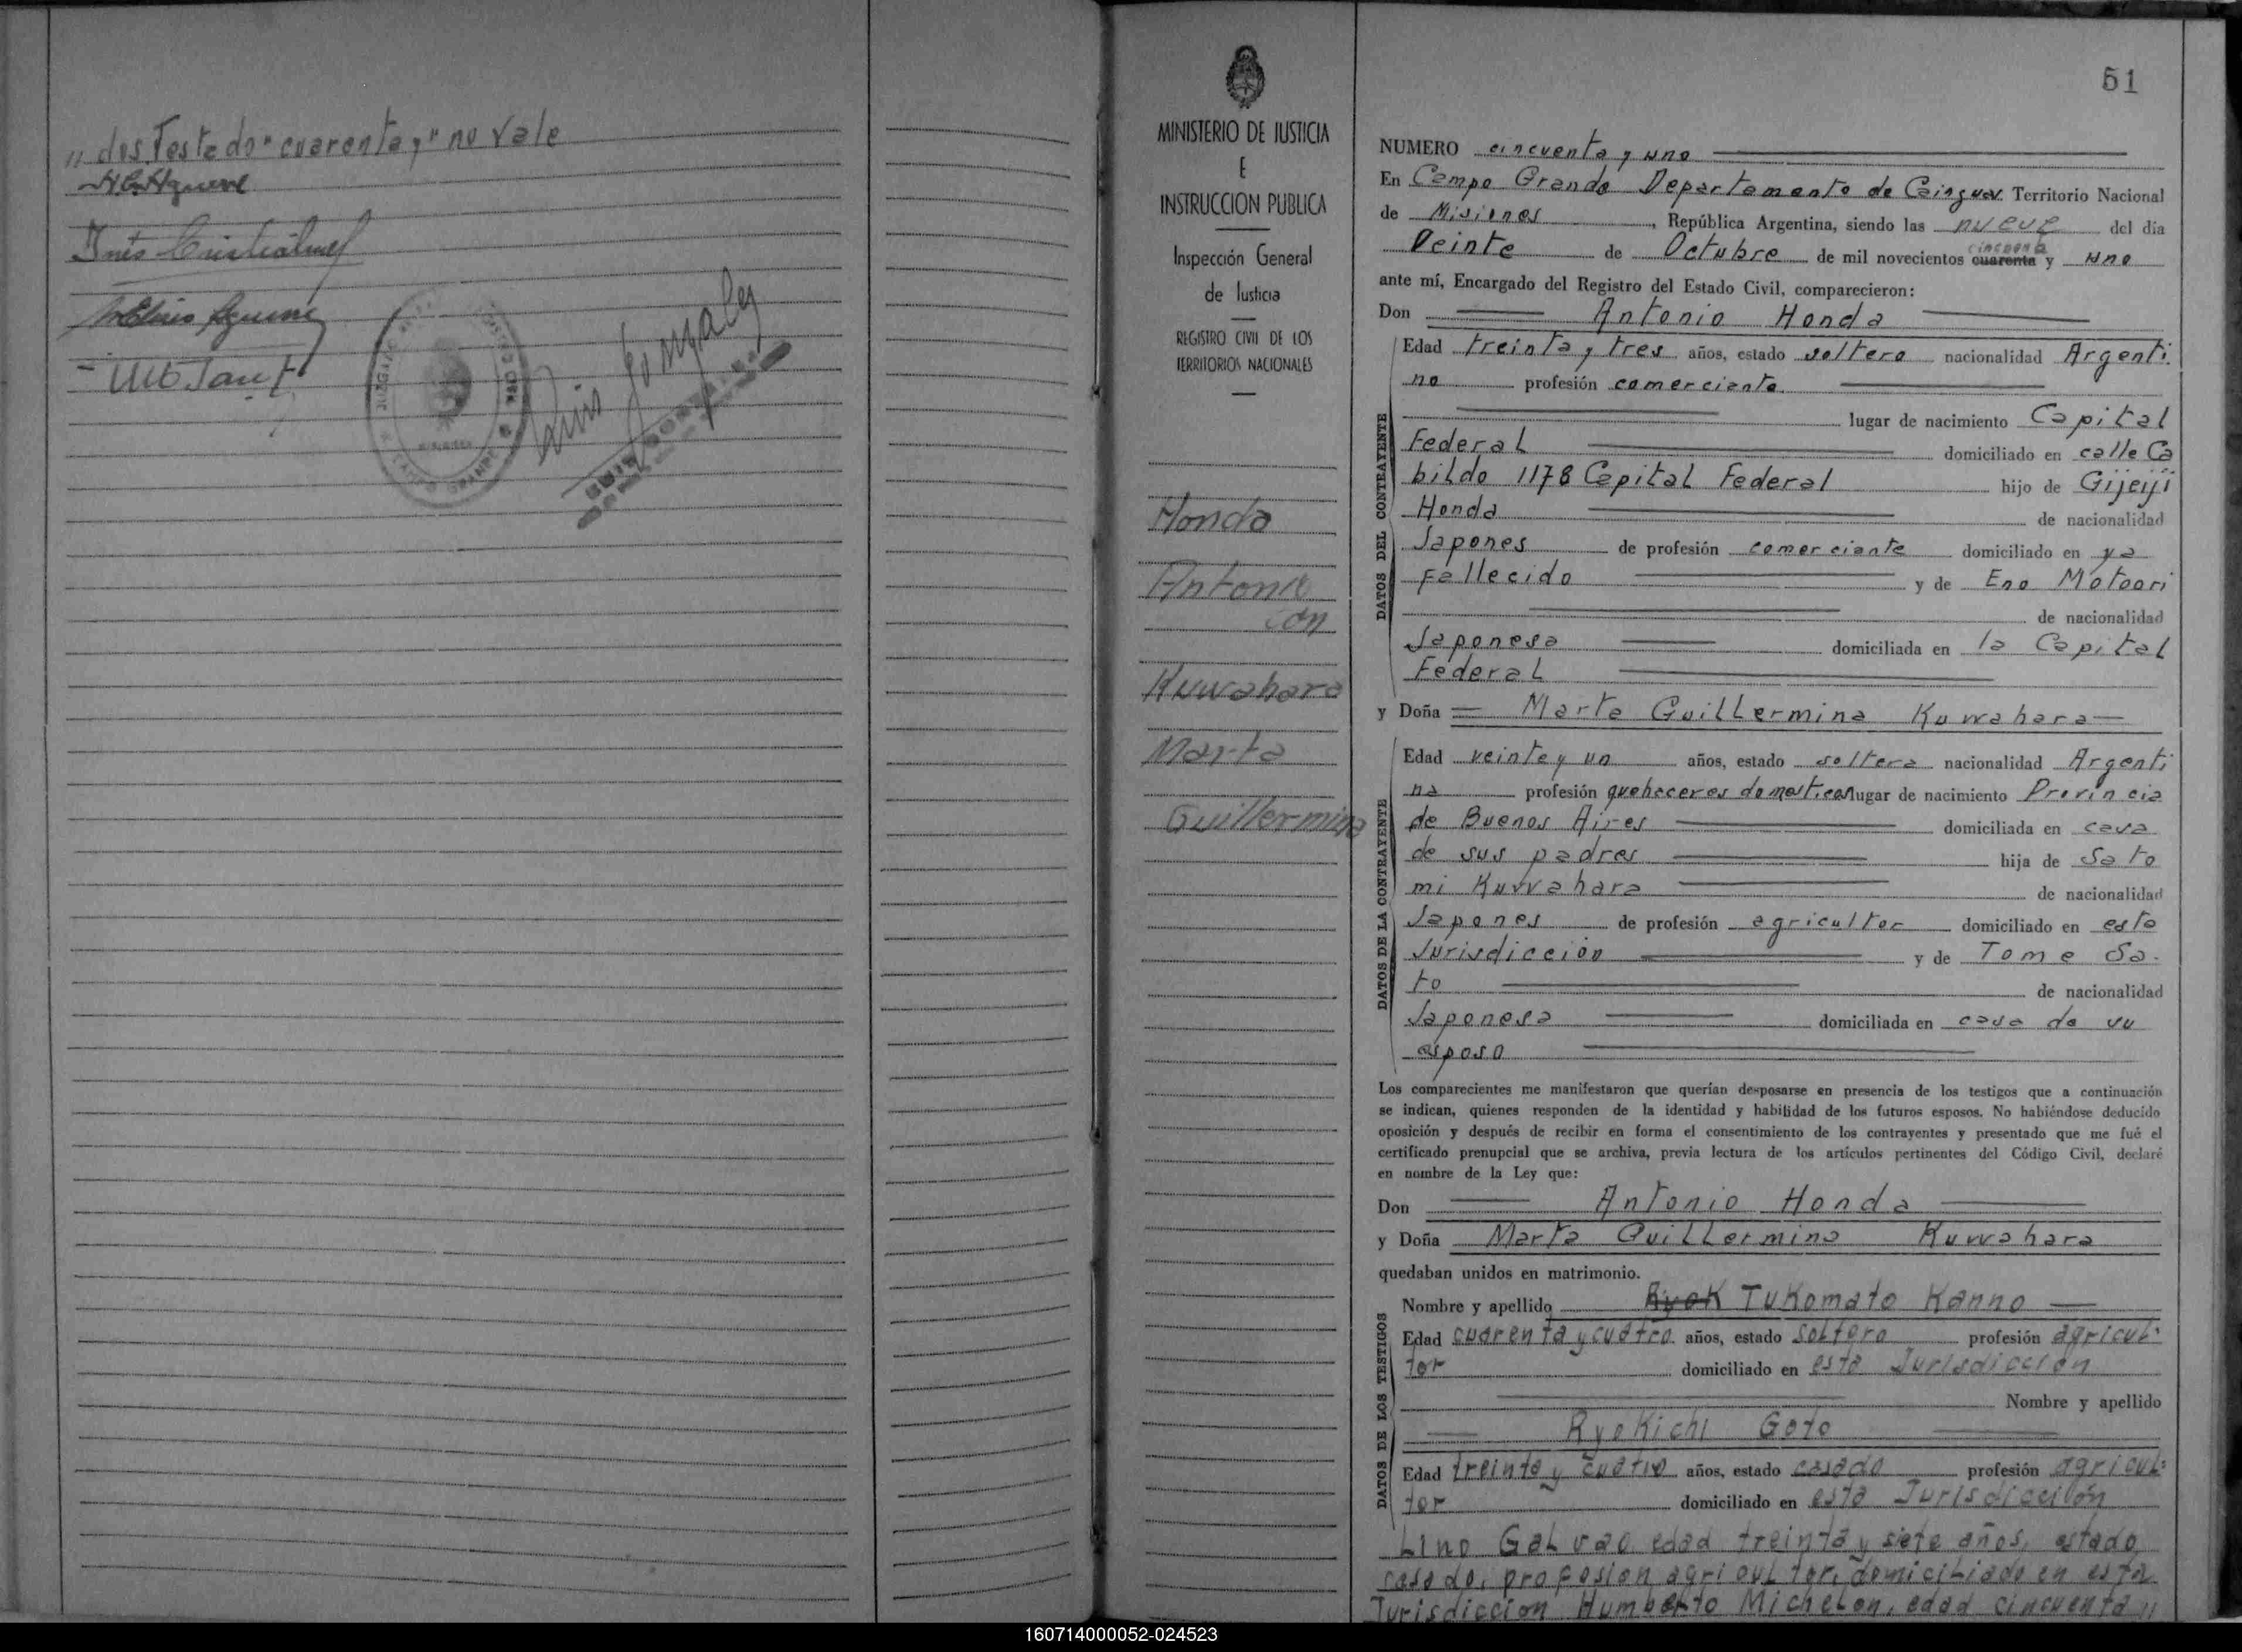 ,, dos. Testado "cuarenta y" no vale
Luis Gonzalez
CAMPO GRANDE
51
MINISTERIO DE JUSTICIA
E
INSTRUCCION PUBLICA
Inspección General
de Justicia
REGISTRO CIVIL DE LOS
TERRITORIOS NACIONALES
Honda
Antonio
con
Kuwahara
Marta
Guillermina
NUMERO cincuenta y uno
En Campo Grande Departamento de Cainguas Territorio Nacional
de Misiones, República Argentina, siendo las nueve del día
Veinte de Octubre de mil novecientos cuarenta cincuenta y uno
ante mí, Encargado del Registro del Estado Civil, comparecieron:
Don Antonio Honda
DATOS DEL CONTRAYENTE
Edad treinta y tres años, estado soltero nacionalidad Argenti
no profesión comerciante
lugar de nacimiento Capital
Federal domiciliado en calle Ca
bildo 1178 Capital Federal hijo de Gijeiji
Honda de nacionalidad
Japones de profesión comerciante domiciliado en ya
fallecido y de Eno Motoori
de nacionalidad
Japonesa domiciliada en la Capital
Federal
y Doña Marta Guillermina Kuwahara
DATOS DE LA CONTRAYENTE
Edad veinte y un años, estado soltera nacionalidad Argenti
na profesión quehaceres domesticos lugar de nacimiento Provincia
de Buenos Aires domiciliada en casa
de sus padres hija de Sato
mi Kuwahara de nacionalidad
Japones de profesión agricultor domiciliado en esta
Jurisdicción y de Tome Sa-
to de nacionalidad
Japonesa domiciliada en casa de su
esposo
Los comparecientes me manifestaron que querían desposarse en presencia de los testigos que a continuación
se indican, quienes responden de la identidad y habilidad de los futuros esposos. No habiéndose deducido
oposición y después de recibir en forma el consentimiento de los contrayentes y presentado que me fué el
certificado prenupcial que se archiva, previa lectura de los artículos pertinentes del Código Civil, declaré
en nombre de la Ley que:
Don Antonio Honda
y Doña Marta Guillermina Kuwahara
quedaban unidos en matrimonio.
DATOS DE LOS TESTIGOS
Nombre y apellido Ryok Tukomato Kanno
Edad cuarenta y cuatro años, estado soltero profesión agricul-
tor domiciliado en esta Jurisdicción
Nombre y apellido
RyoKichi Goto
Edad treinta y cuatro años, estado casado profesión agricul-
tor domiciliado en esta Jurisdicción
Lino Galvao edad treinta y siete años, estado
casado, profesion agricultor, domiciliado en esta
Jurisdiccion Humberto Michelon, edad cincuenta ,,
160714000052-024523